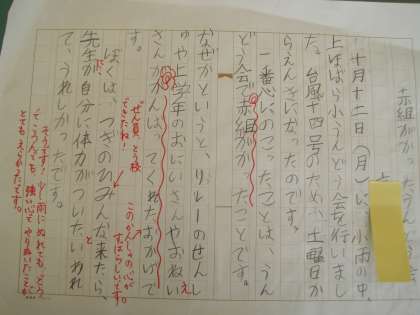 赤組がかったうんどう会
十月十二日(月)に、小雨の中、
上ほばら小うんどう会を行いまし
た。台風十四号のため、土曜日か
らえんきになったのです。
一番心にのこったことは、うん
どう会で赤組がかったことです。
なぜかというと、リレーのせんし
ゅや上学年のおにいさんやおねい
さんががんばってくれたおかげで
す。
ぜん員、とう校
できたね!
このかんしゃの心が
すばらしいです。
ぼくは、つぎのひみんな来たら、
先生が自分に体力がついたいわれ
と
て、うれしかったです。
そうです!少々雨にぬれても、どろん
とてもえらかったです。